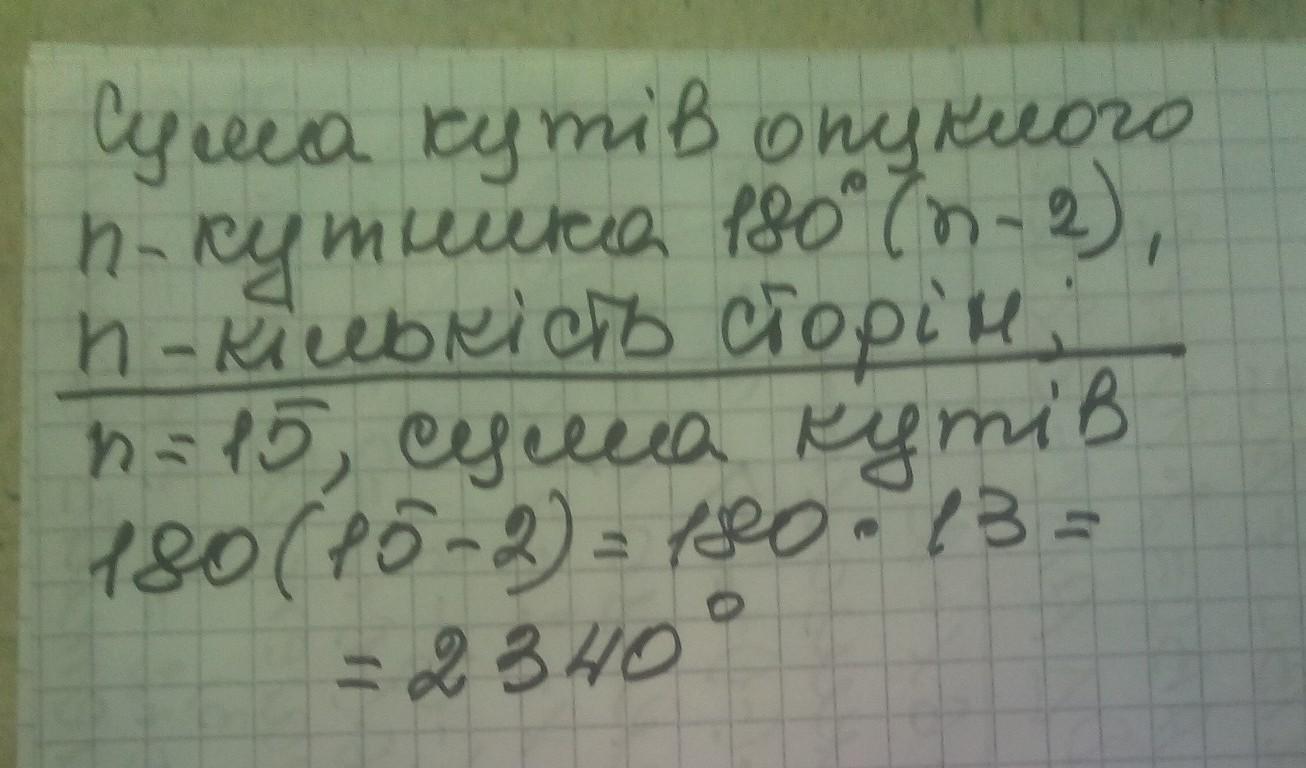 Сума кутів опуклого
n-кутника 180°(n-2),
n-кількість сторін;
n=15, сума кутів
180(15-2)=180·13=
=2340°